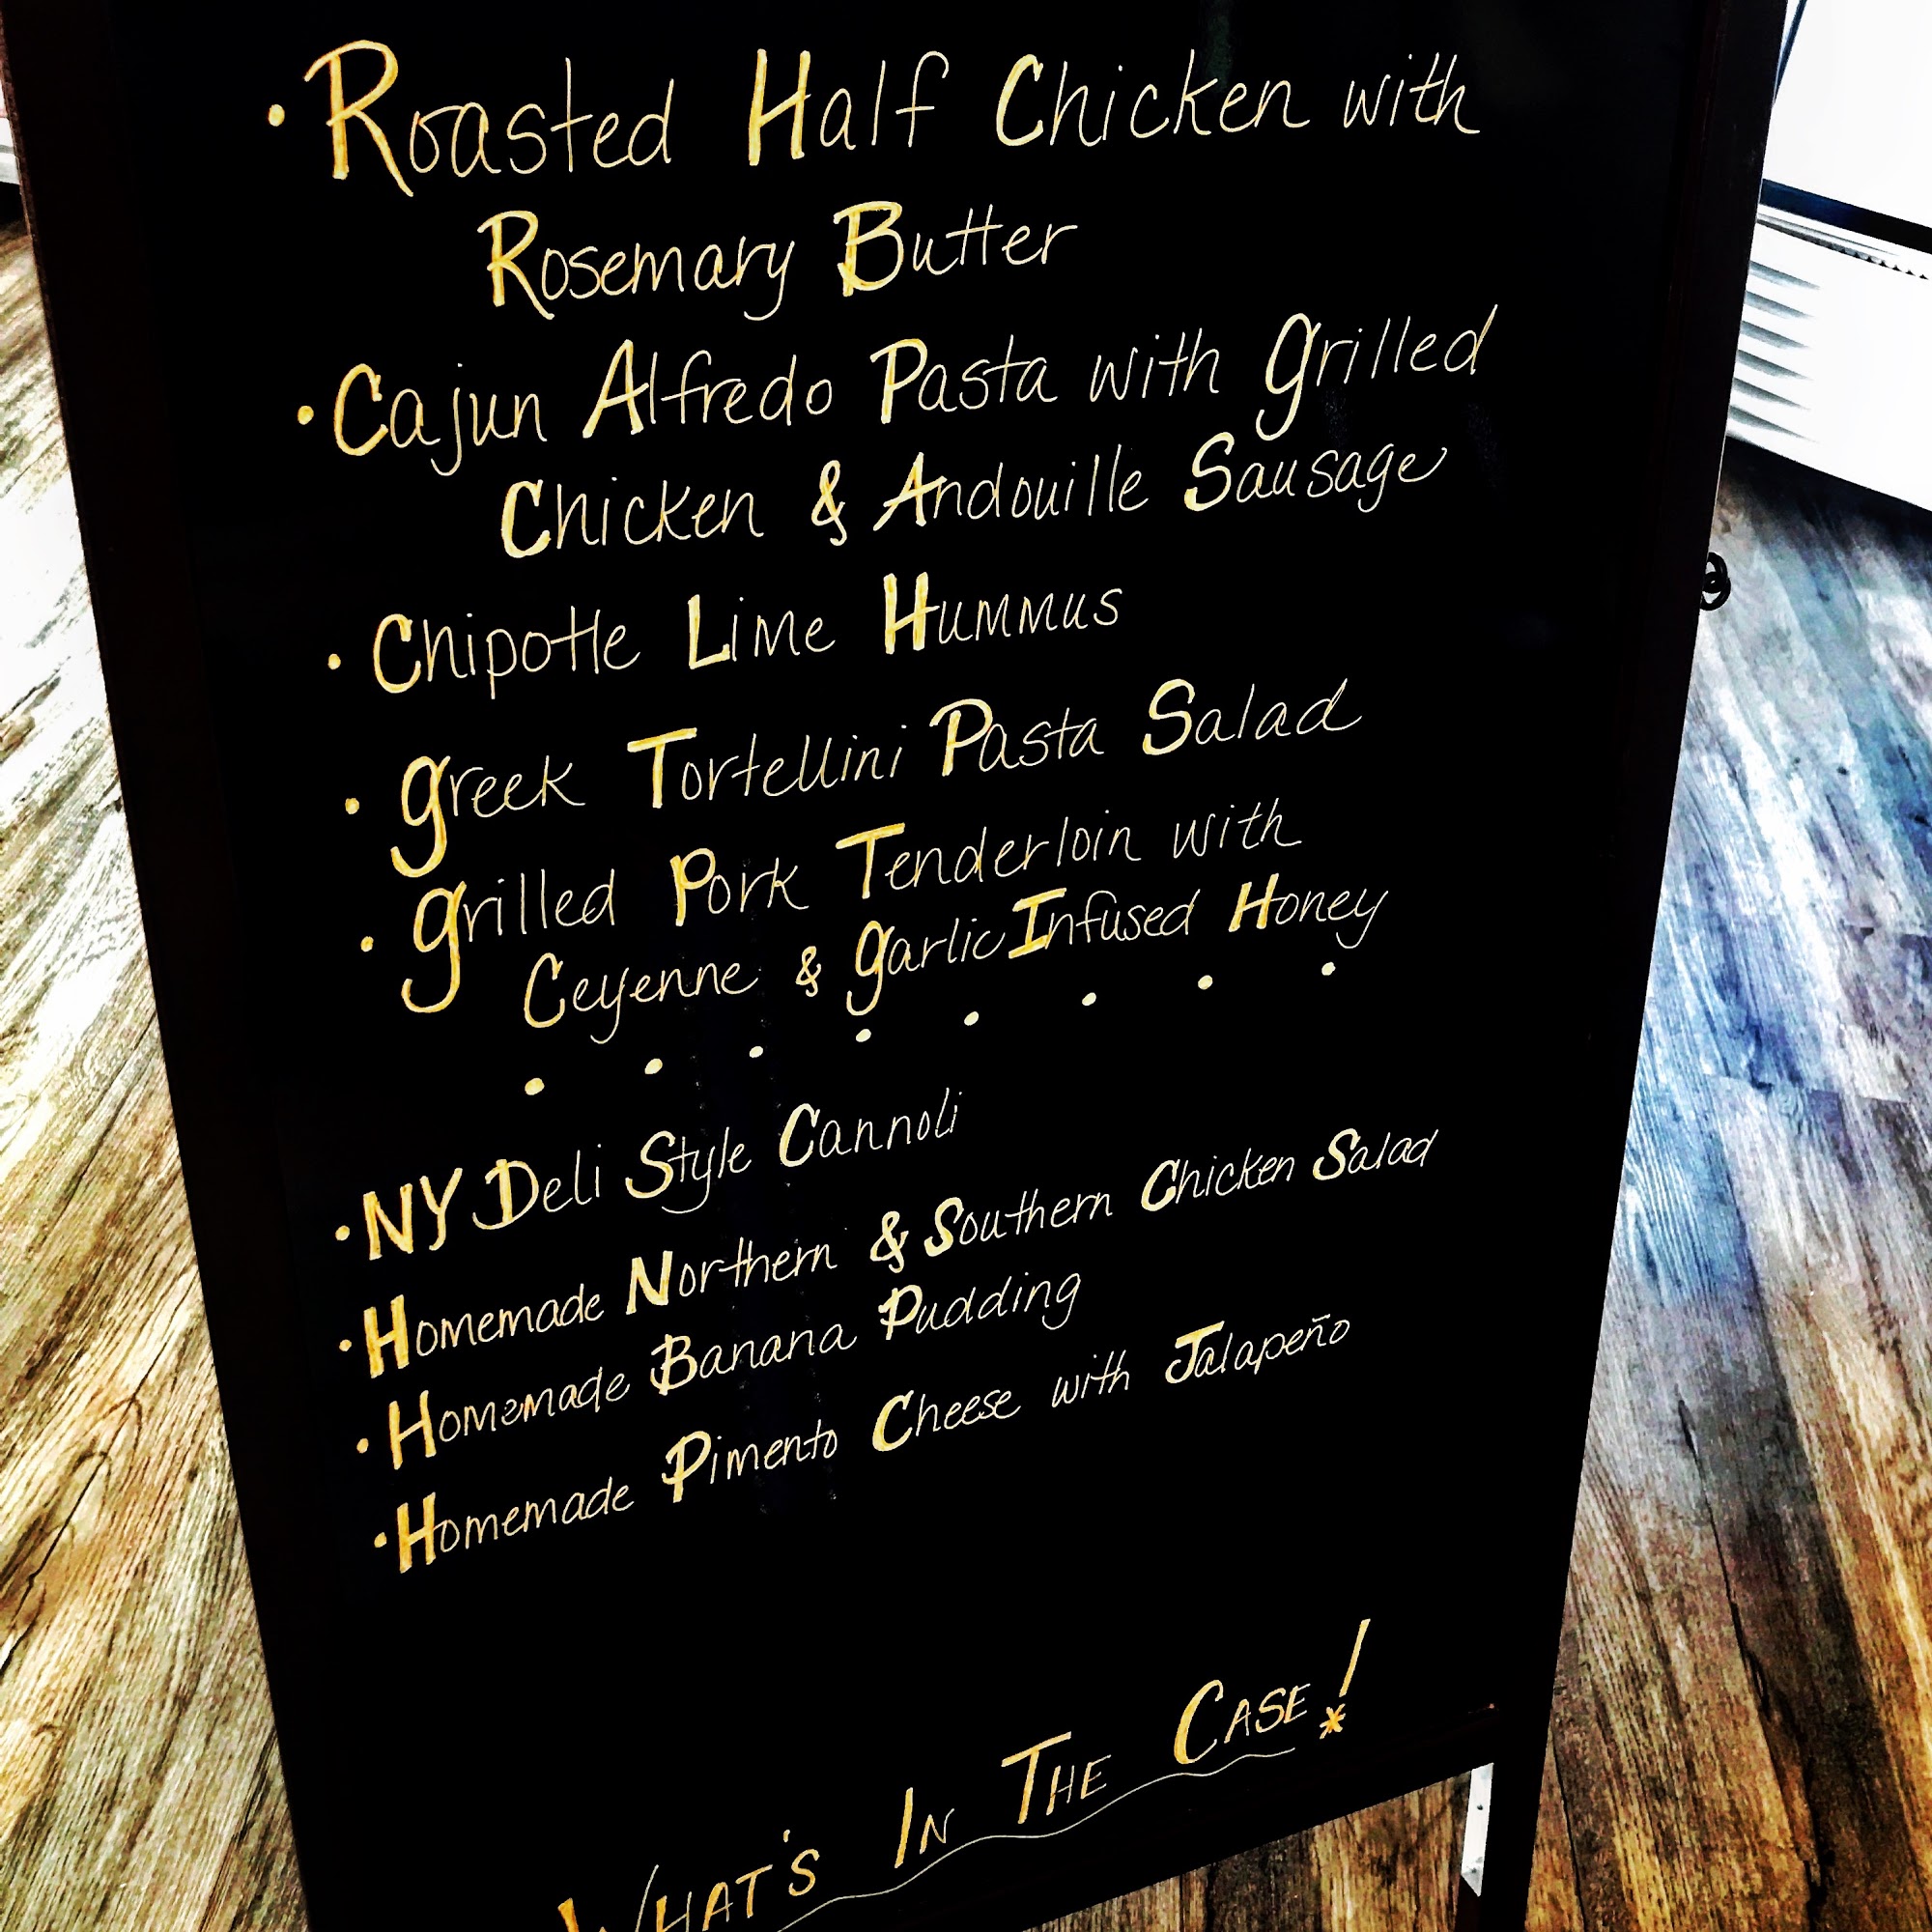 • Roasted Half Chicken with
Rosemary Butter
• Cajun Alfredo Pasta with Grilled
Chicken & Andouille Sausage
• Chipotle Lime Hummus
• Greek Tortellini Pasta Salad
• Grilled Pork Tenderloin with
Ceyenne & Garlic Infused Honey
• NY Deli Style Cannoli
• Homemade Northern & Southern Chicken Salad
• Homemade Banana Pudding
• Homemade Pimento Cheese with Jalapeño
What's In The Case!